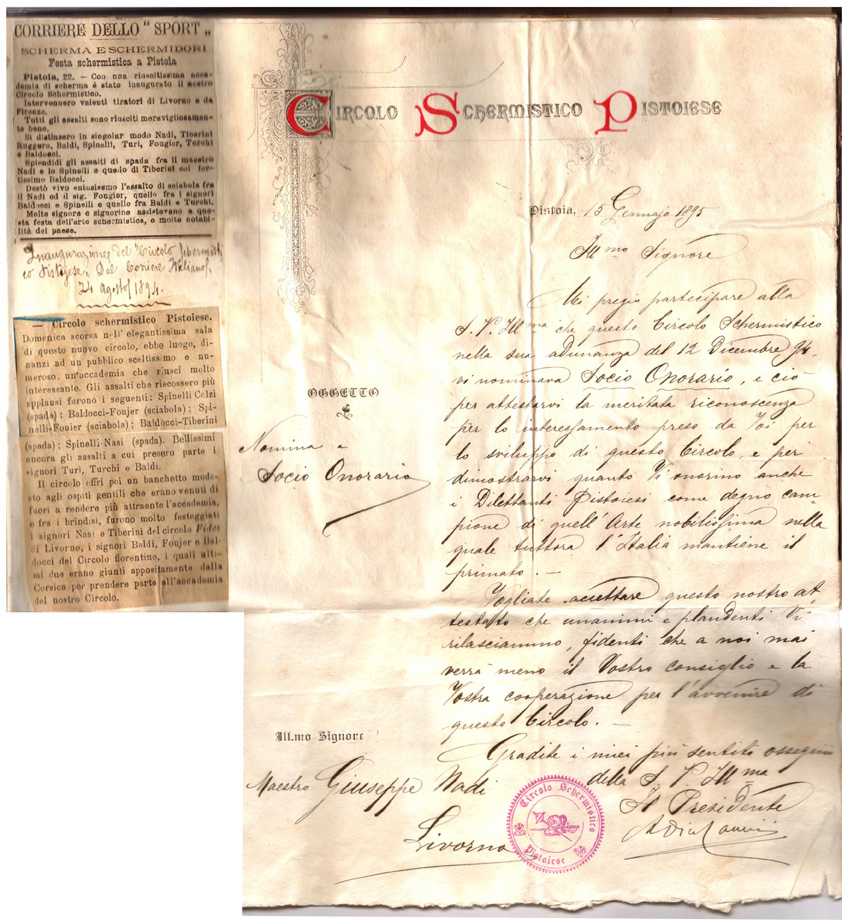 CORRIERE DELLO "SPORT„
SCHERMA E SCHERMIDORI
Festa schermistica a Pistoia
Pistoia, 22. — Con una riuscitissima acca-
demia di scherma è stato inaugurato il nostro
Circolo Schermistico.
Intervennero valenti tiratori di Livorno e da
Firenze.
Tutti gli assalti sono riusciti meravigliosamen-
te bene.
Si distinsero in singolar modo Nadi, Tiberini
Ruggero, Baldi, Spinelli, Turi, Fougier, Turchi
e Baldocci.
Splendidi gli assalti di spada fra il maestro
Nadi e lo Spinelli e quello di Tiberini col for-
tissimo Baldocci.
Destò vivo entusiasmo l'assalto di sciabola fra
il Nadi ed il sig. Fougier, quello fra i signori
Baldocci e Spinelli e quello fra Baldi e Turchi.
Molte signore e signorine assistevano a que-
sta festa dell'arte schermistica, e molte notabi-
lità del paese.
Inaugurazione del Circolo Schermisti
co Pistojese. Dal Corriere Italiano,
24 agosto 1894.
— Circolo schermistico Pistoiese.
Domenica scorsa nell' elegantissima sala
di questo nuovo circolo, ebbe luogo, di-
nanzi ad un pubblico sceltissimo e nu-
meroso, un'accademia che riuscì molto
interessante. Gli assalti che riscossero più
applausi furono i seguenti: Spinelli Colzi
(spada); Baldocci-Foujer (sciabola); Spi-
nelli-Fouier (sciabola); Baldocci-Tiberini
(spada); Spinelli-Nasi (spada). Bellissimi
ancora gli assalti a cui presero parte i
signori Turi, Turchi e Baldi.
Il circolo offrì poi un banchetto mode-
sto agli ospiti gentili che erano venuti di
fuori a rendere più attraente l'accademia,
e fra i brindisi, furono molto festeggiati
i signori Nasi e Tiberini del circolo Fides
di Livorno, i signori Baldi, Foujer e Bal-
docci del Circolo fiorentino, i quali ulti-
mi due erano giunti appositamente dalla
Corsica per prendere parte all'accademia
del nostro Circolo.
Circolo Schermistico Pistoiese
Pistoia, 15 Gennajo 1895
Ill.mo Signore
Mi pregio partecipare alla
S. V. Ill.ma che questo Circolo Schermistico
nella sua adunanza del 12 Dicembre 94.
vi nominava Socio Onorario, e ciò
per attestarvi la meritata riconoscenza
per lo interessamento preso da Voi per
lo sviluppo di questo Circolo, e per
dimostrarvi quanto Vi onorino anche
i Dilettanti Pistoiesi come degno cam-
pione di quell'Arte nobilissima nella
quale tuttora l'Italia mantiene il
primato. —
Vogliate accettare questo nostro at-
testato che unanimi e plaudenti Vi
rilasciammo, fidenti che a noi mai
verrà meno il Vostro consiglio e la
Vostra cooperazione per l'avvenire di
questo Circolo. —
Gradite i miei più sentiti ossequi
della S. V. Ill.ma
Il Presidente
OGGETTO
Nomina a
Socio Onorario
Ill.mo Signore
Maestro Giuseppe Nadi
Livorno
Circolo Schermistico
Pistoiese